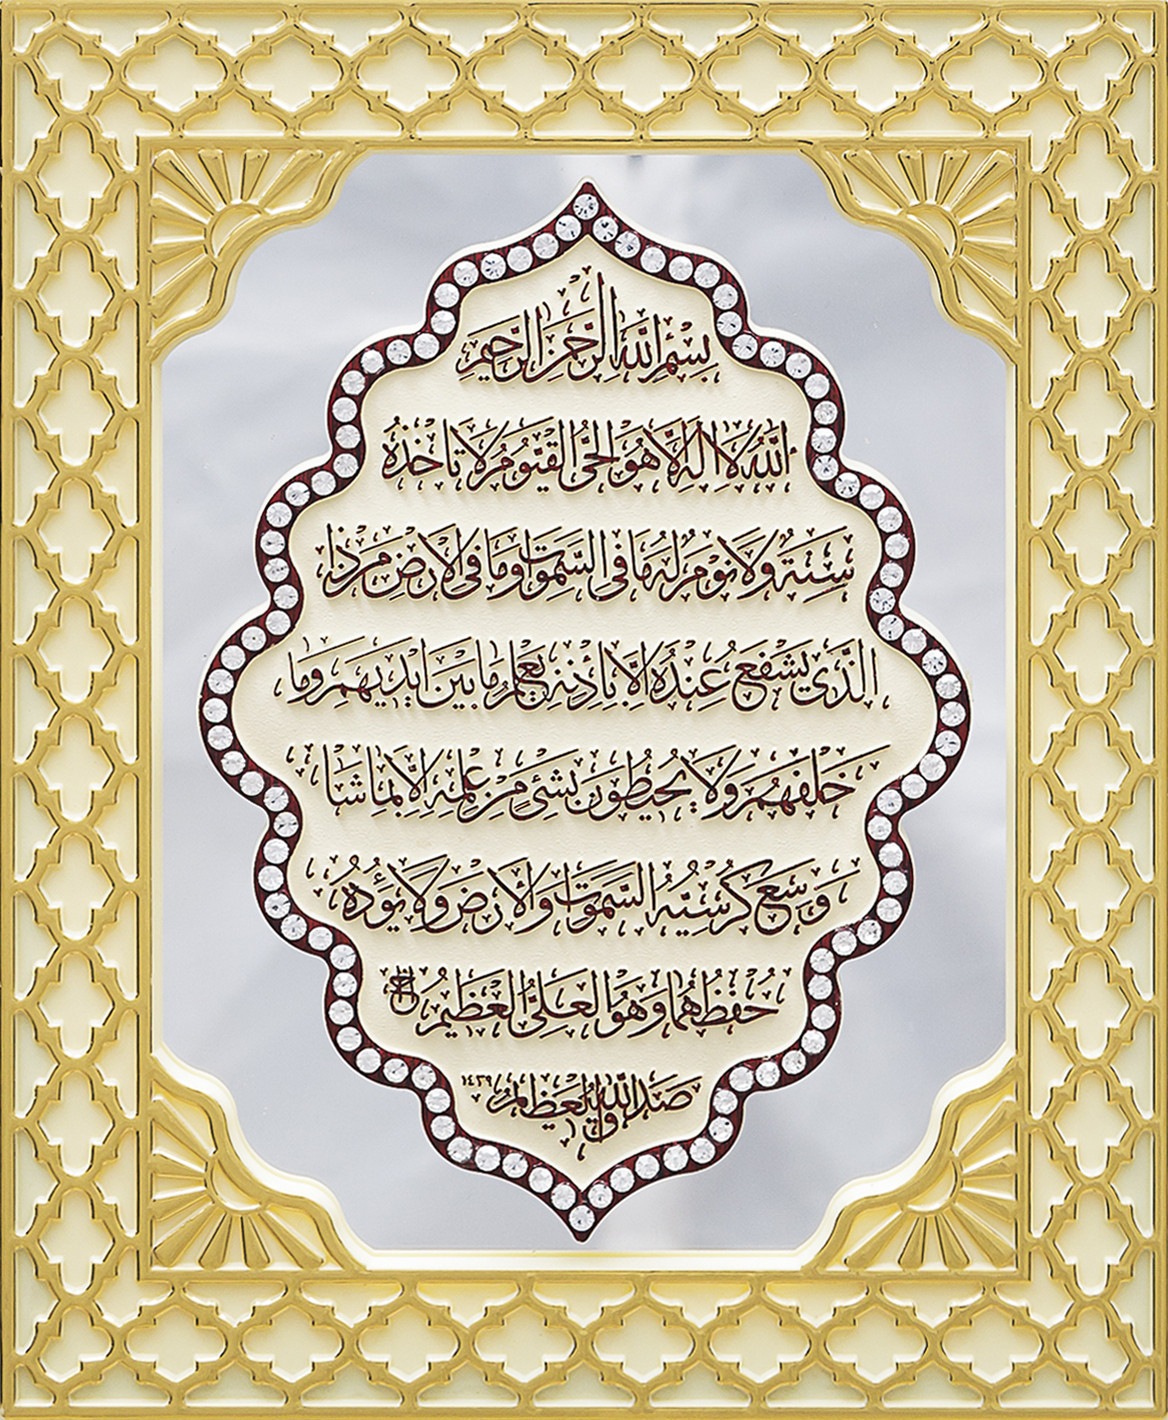 بِسْمِ اللّٰهِ الرَّحْمٰنِ الرَّحِيمِ
اَللّٰهُ لَا اِلٰهَ اِلَّا هُوَ الْحَيُّ الْقَيُّومُ لَا تَأْخُذُهُ
سِنَةٌ وَلَا نَوْمٌ لَهُ مَا فِي السَّمٰوَاتِ وَمَا فِي الْاَرْضِ مَنْ ذَا
الَّذِي يَشْفَعُ عِنْدَهُ اِلَّا بِاِذْنِهِ يَعْلَمُ مَا بَيْنَ اَيْدِيهِمْ وَمَا
خَلْفَهُمْ وَلَا يُحِيطُونَ بِشَيْءٍ مِنْ عِلْمِهِ اِلَّا بِمَا شَاءَ
وَسِعَ كُرْسِيُّهُ السَّمٰوَاتِ وَالْاَرْضَ وَلَا يَؤُدُهُ
حِفْظُهُمَا وَهُوَ الْعَلِيُّ الْعَظِيمُ
صَدَقَ اللّٰهُ الْعَظِيمُ ١٤٣٩